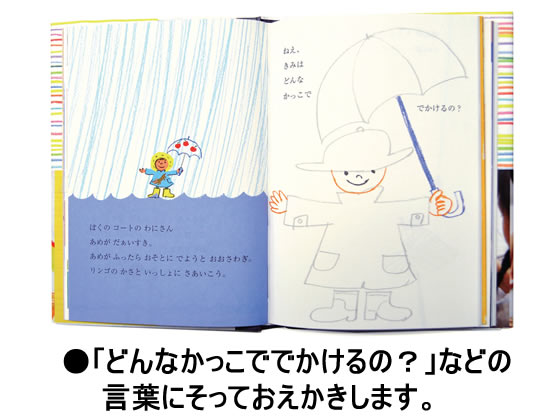 ぼくの コートの わにさん
あめが だぁいすき。
あめが ふったら おそとに でようと おおさわぎ。
リンゴの かさと いっしょに さあいこう。
ねえ。
きみは
どんな
かっこで
でかけるの？
●「どんなかっこででかけるの？」などの
言葉にそっておえかきします。